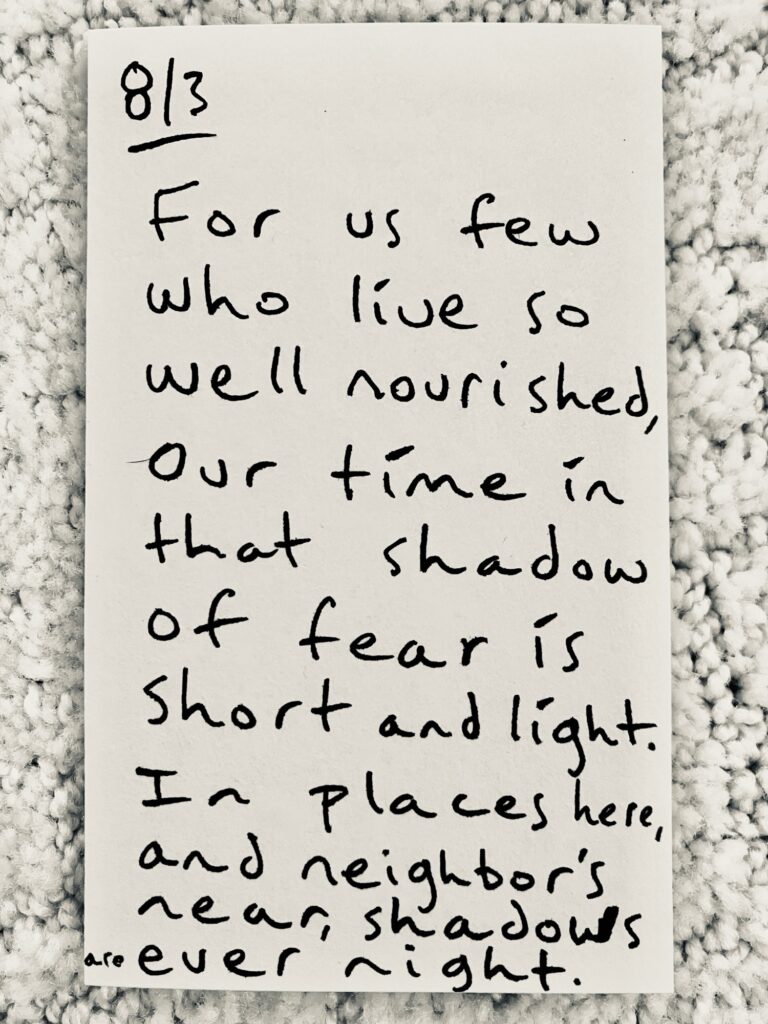 8/3
For us few
who live so
well nourished,
Our time in
that shadow
of fear is
short and light.
In places here,
and neighbor's
near, shadows
are ever night.